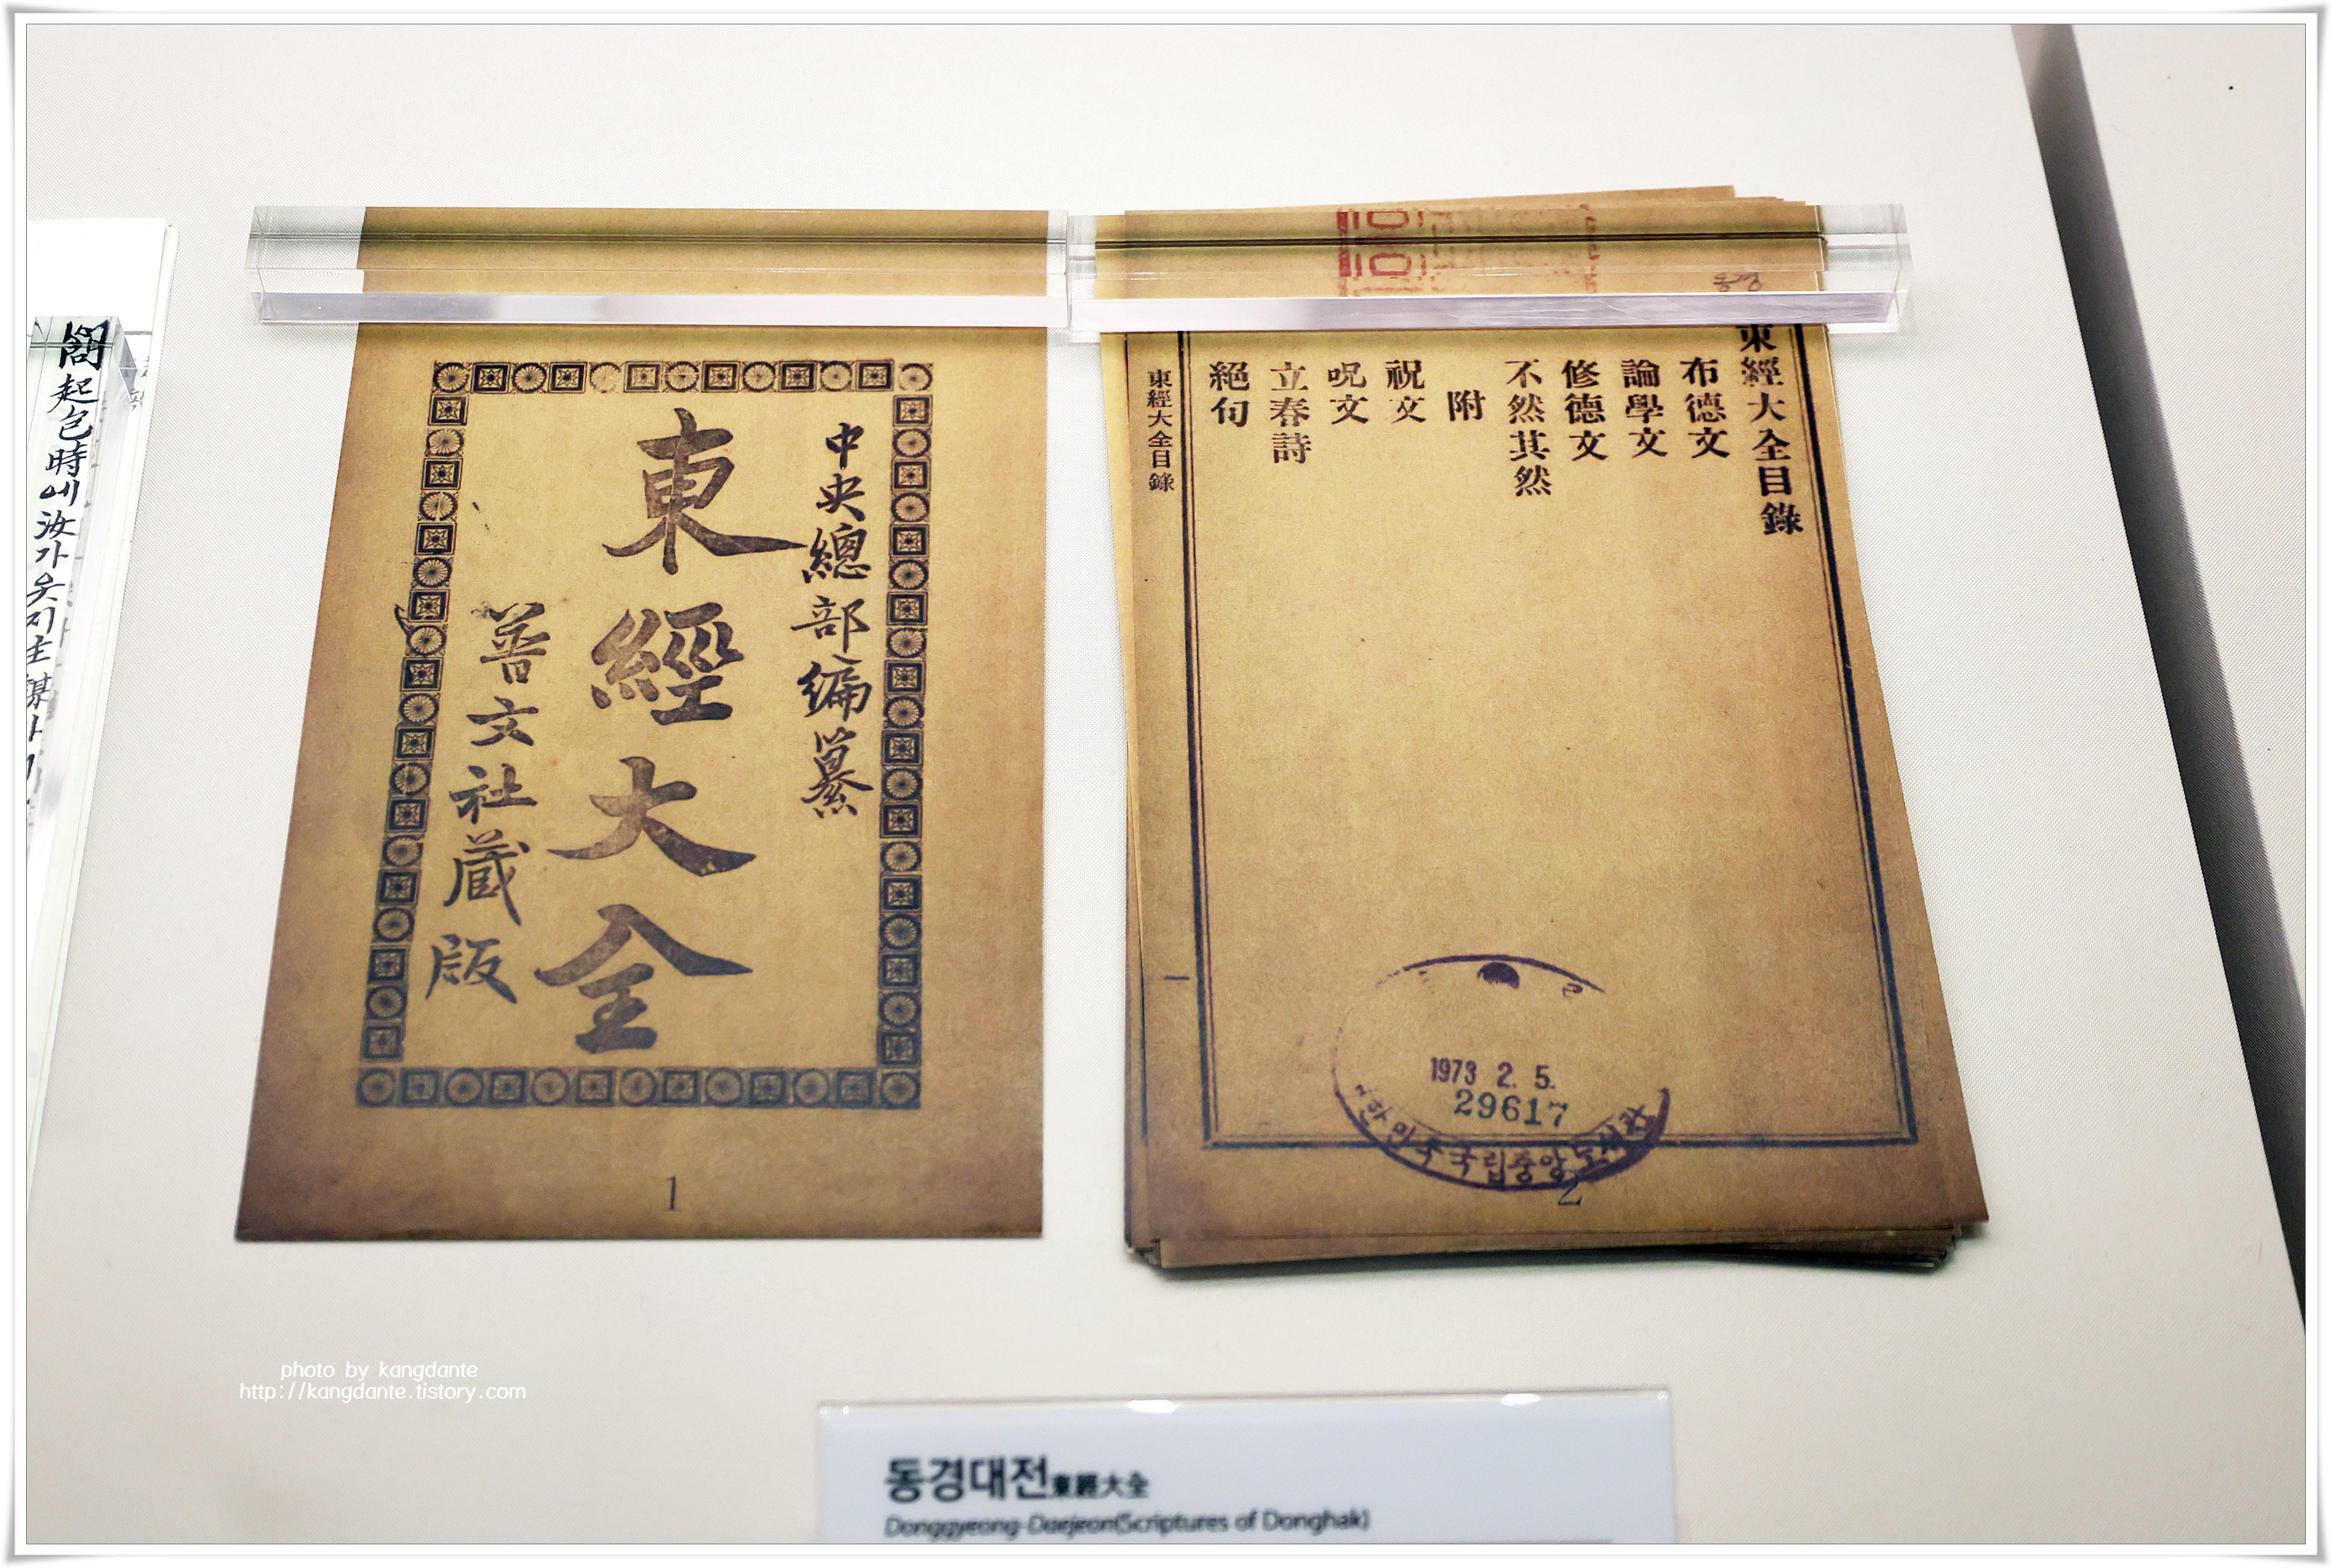 中央總部編纂
東經大全
普文社藏版
1
東經大全目錄
布德文
論學文
修德文
不然其然
附
祝文
呪文
立春詩
絕句
東經大全目錄
1973 2. 5.
29617
국립중앙도서관
2
起包時에汝가
photo by kangdante
http://kangdante.tistory.com
동경대전東經大全
Donggyeong-Daejeon(Scriptures of Donghak)